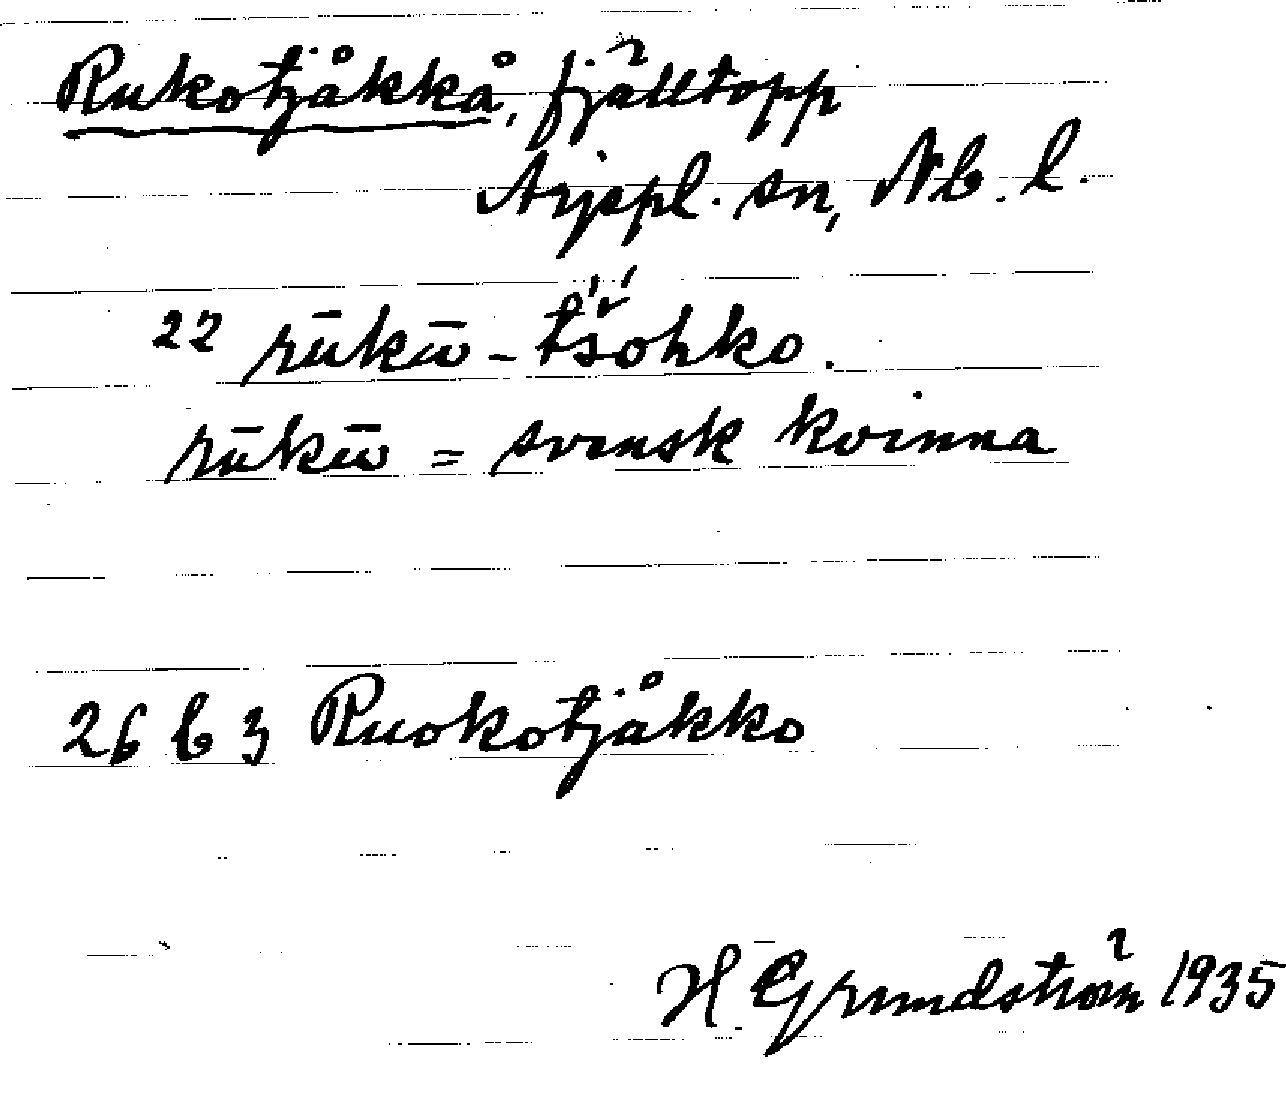 Rukotjåkkå, fjälltopp
Arjepl. sn, Nb. l.
22 rūkūo - tšohko.
rūkūo = svensk kvinna
26 b 3 Ruokotjåkko
H Grundström 1935